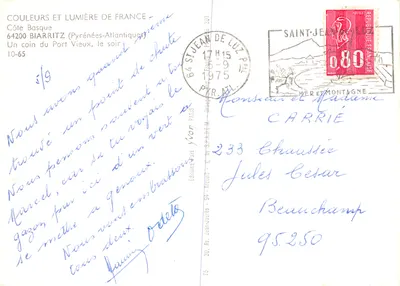 COULEURS ET LUMIÈRE DE FRANCE
Côte Basque
64200 BIARRITZ (Pyrénées-Atlantiques)
Un coin du Port Vieux, le soir
10-65
5/9
Nous avons quand même
trouvé un point de chute
Nous pensons souvent à toi
Marcel, car si tu voyais le
gazon, par ici d'un vert à
se mettre à genoux.
Nous vous embrassons
tous deux
Odette
64 ST JEAN DE LUZ PPAL
17H15
1975
PYR. ATL.
SAINT-JEAN-DE-LUZ
MER ET MONTAGNE
0,80
Monsieur et Madame
CARRIE
233 Chaussée
Jules César
Beauchamp
95250